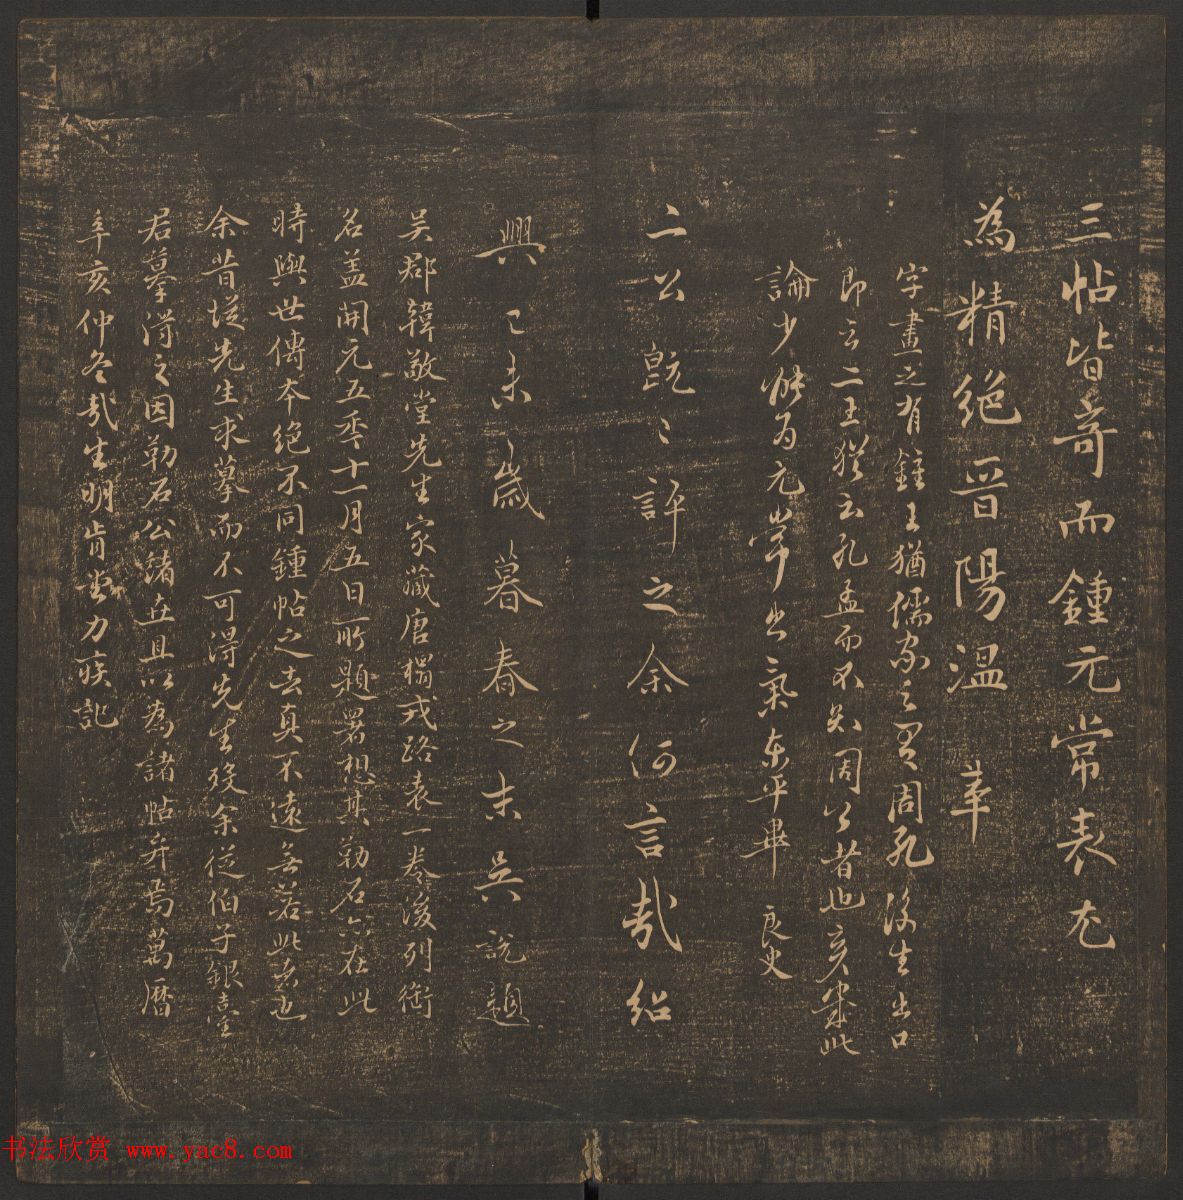 三帖皆奇而鍾元常表尤
為精絕晉陽温革
字畫之有鍾王猶儒家之有周孔後生出口
即言二王猶云孔孟而不知周公者也亥集此
論少伸為元常出氣東平畢良史
二公既評之余何言哉紹
興己未歲暮春之末吳說題
吳郡韓敬堂先生家藏唐搨戎路表一卷後列銜
名蓋開元五年十一月五日所題署想其勒石亦在此
時與世傳本絕不同鍾帖之去真不遠無若此者也
余昔從先生求摹而不可得先生歿余從伯子銀臺
君摹得之因勒石公諸五且以為諸帖弁焉萬曆
辛亥仲冬哉生明肯堂力疾記
书法欣赏 www.yac8.com